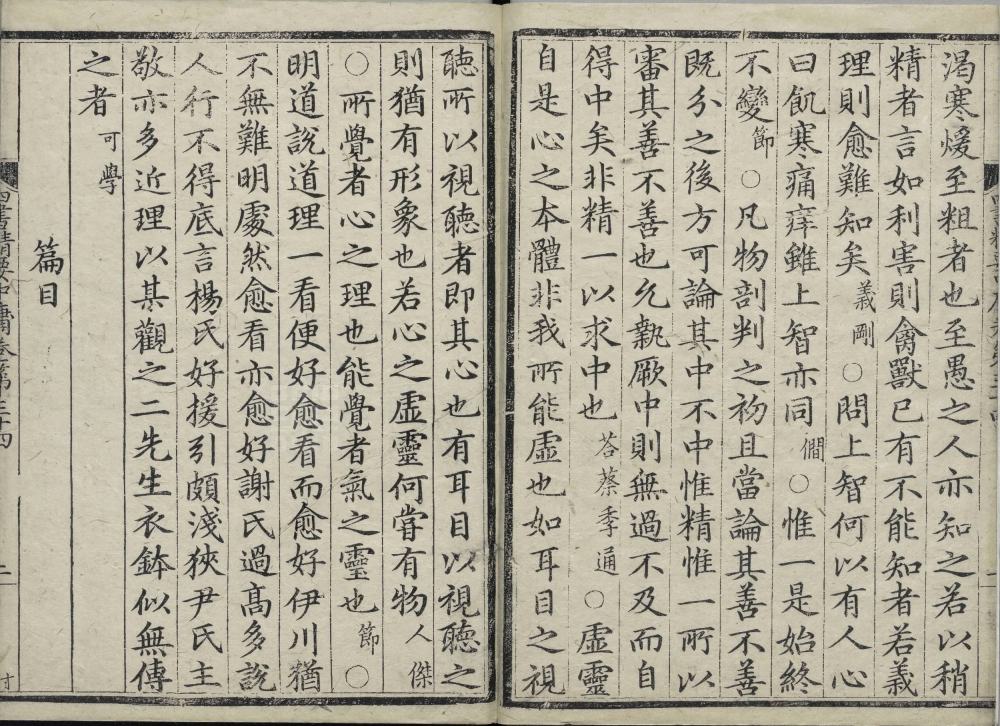 渴寒煖至粗者也至愚之人亦知之若以稍
精者言如利害則禽獸已有不能知者若義
理則愈難知矣義剛○問上智何以有人心
曰飢寒痛癢雖上智亦同僩○惟一是始終
不變節○凡物剖判之初且當論其善不善
既分之後方可論其中不中惟精惟一所以
審其善不善也允執厥中則無過不及而自
得中矣非精一以求中也荅蔡季通○虛靈
自是心之本體非我所能虛也如耳目之視
聽所以視聽者即其心也有耳目以視聽之
則猶有形象也若心之虛靈何甞有物人傑
○所覺者心之理也能覺者氣之靈也節○
明道說道理一看便好愈看而愈好伊川猶
不無難明處然愈看亦愈好謝氏過高多說
人行不得底言楊氏好援引頗淺狹尹氏主
敬亦多近理以其觀之二先生衣鉢似無傳
之者可學
篇目
四書精要中庸卷第三十四
二